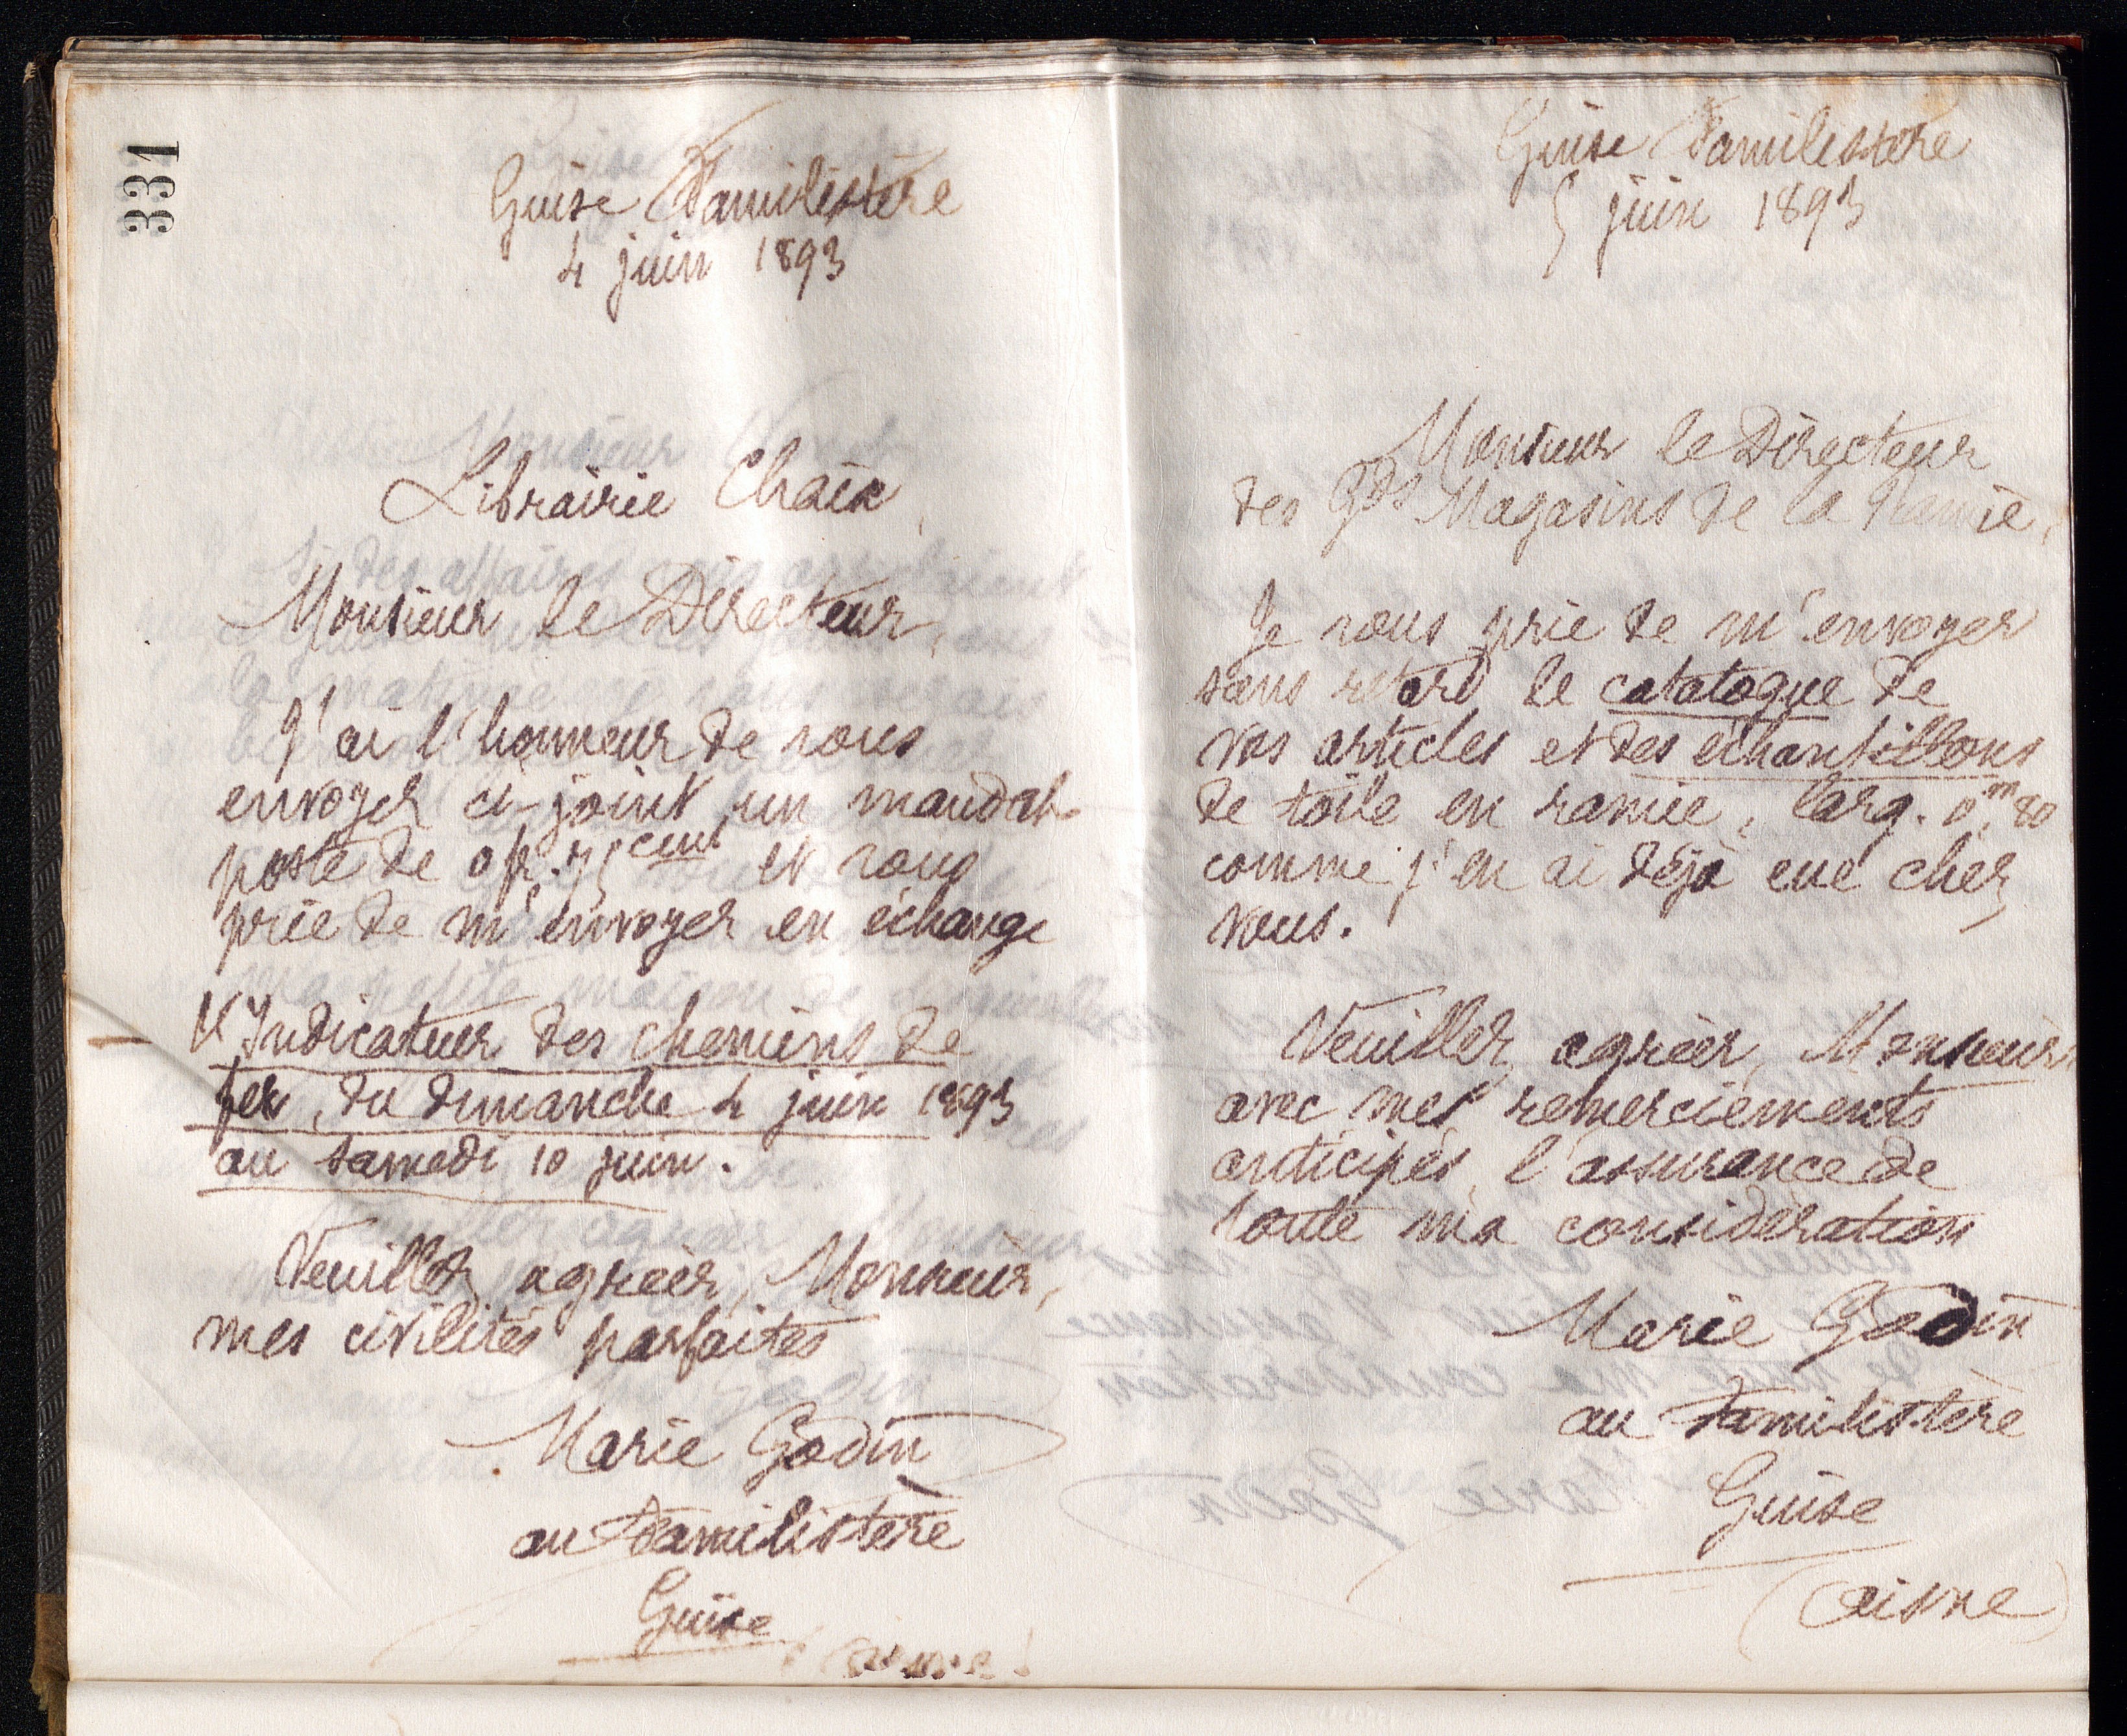 331
Guise Familistère
4 juin 1893
Librairie Chaix,
Monsieur le Directeur,
J'ai l'honneur de vous
envoyer ci-joint un mandat-
poste de 0 fr. 75 cent et vous
prie de m'envoyer en échange
l'Indicateur des chemins de
fer, du dimanche 4 juin 1893
au samedi 10 juin.
Veuillez agréer, Monsieur,
mes civilités parfaites
Marie Godin
au Familistère
Guise
(Aisne)
Guise Familistère
5 juin 1893
Monsieur le Directeur
des Gds Magasins de la Ramie,
Je vous prie de m'envoyer
sans retard le catalogue de
vos articles et des échantillons
de toile en ramie, larg. 0m,80
comme j'en ai déjà eue chez
vous.
Veuillez agréer, Monsieur,
avec mes remerciements
anticipés, l'assurance de
toute ma considération
Marie Godin
au Familistère
Guise
(Aisne)